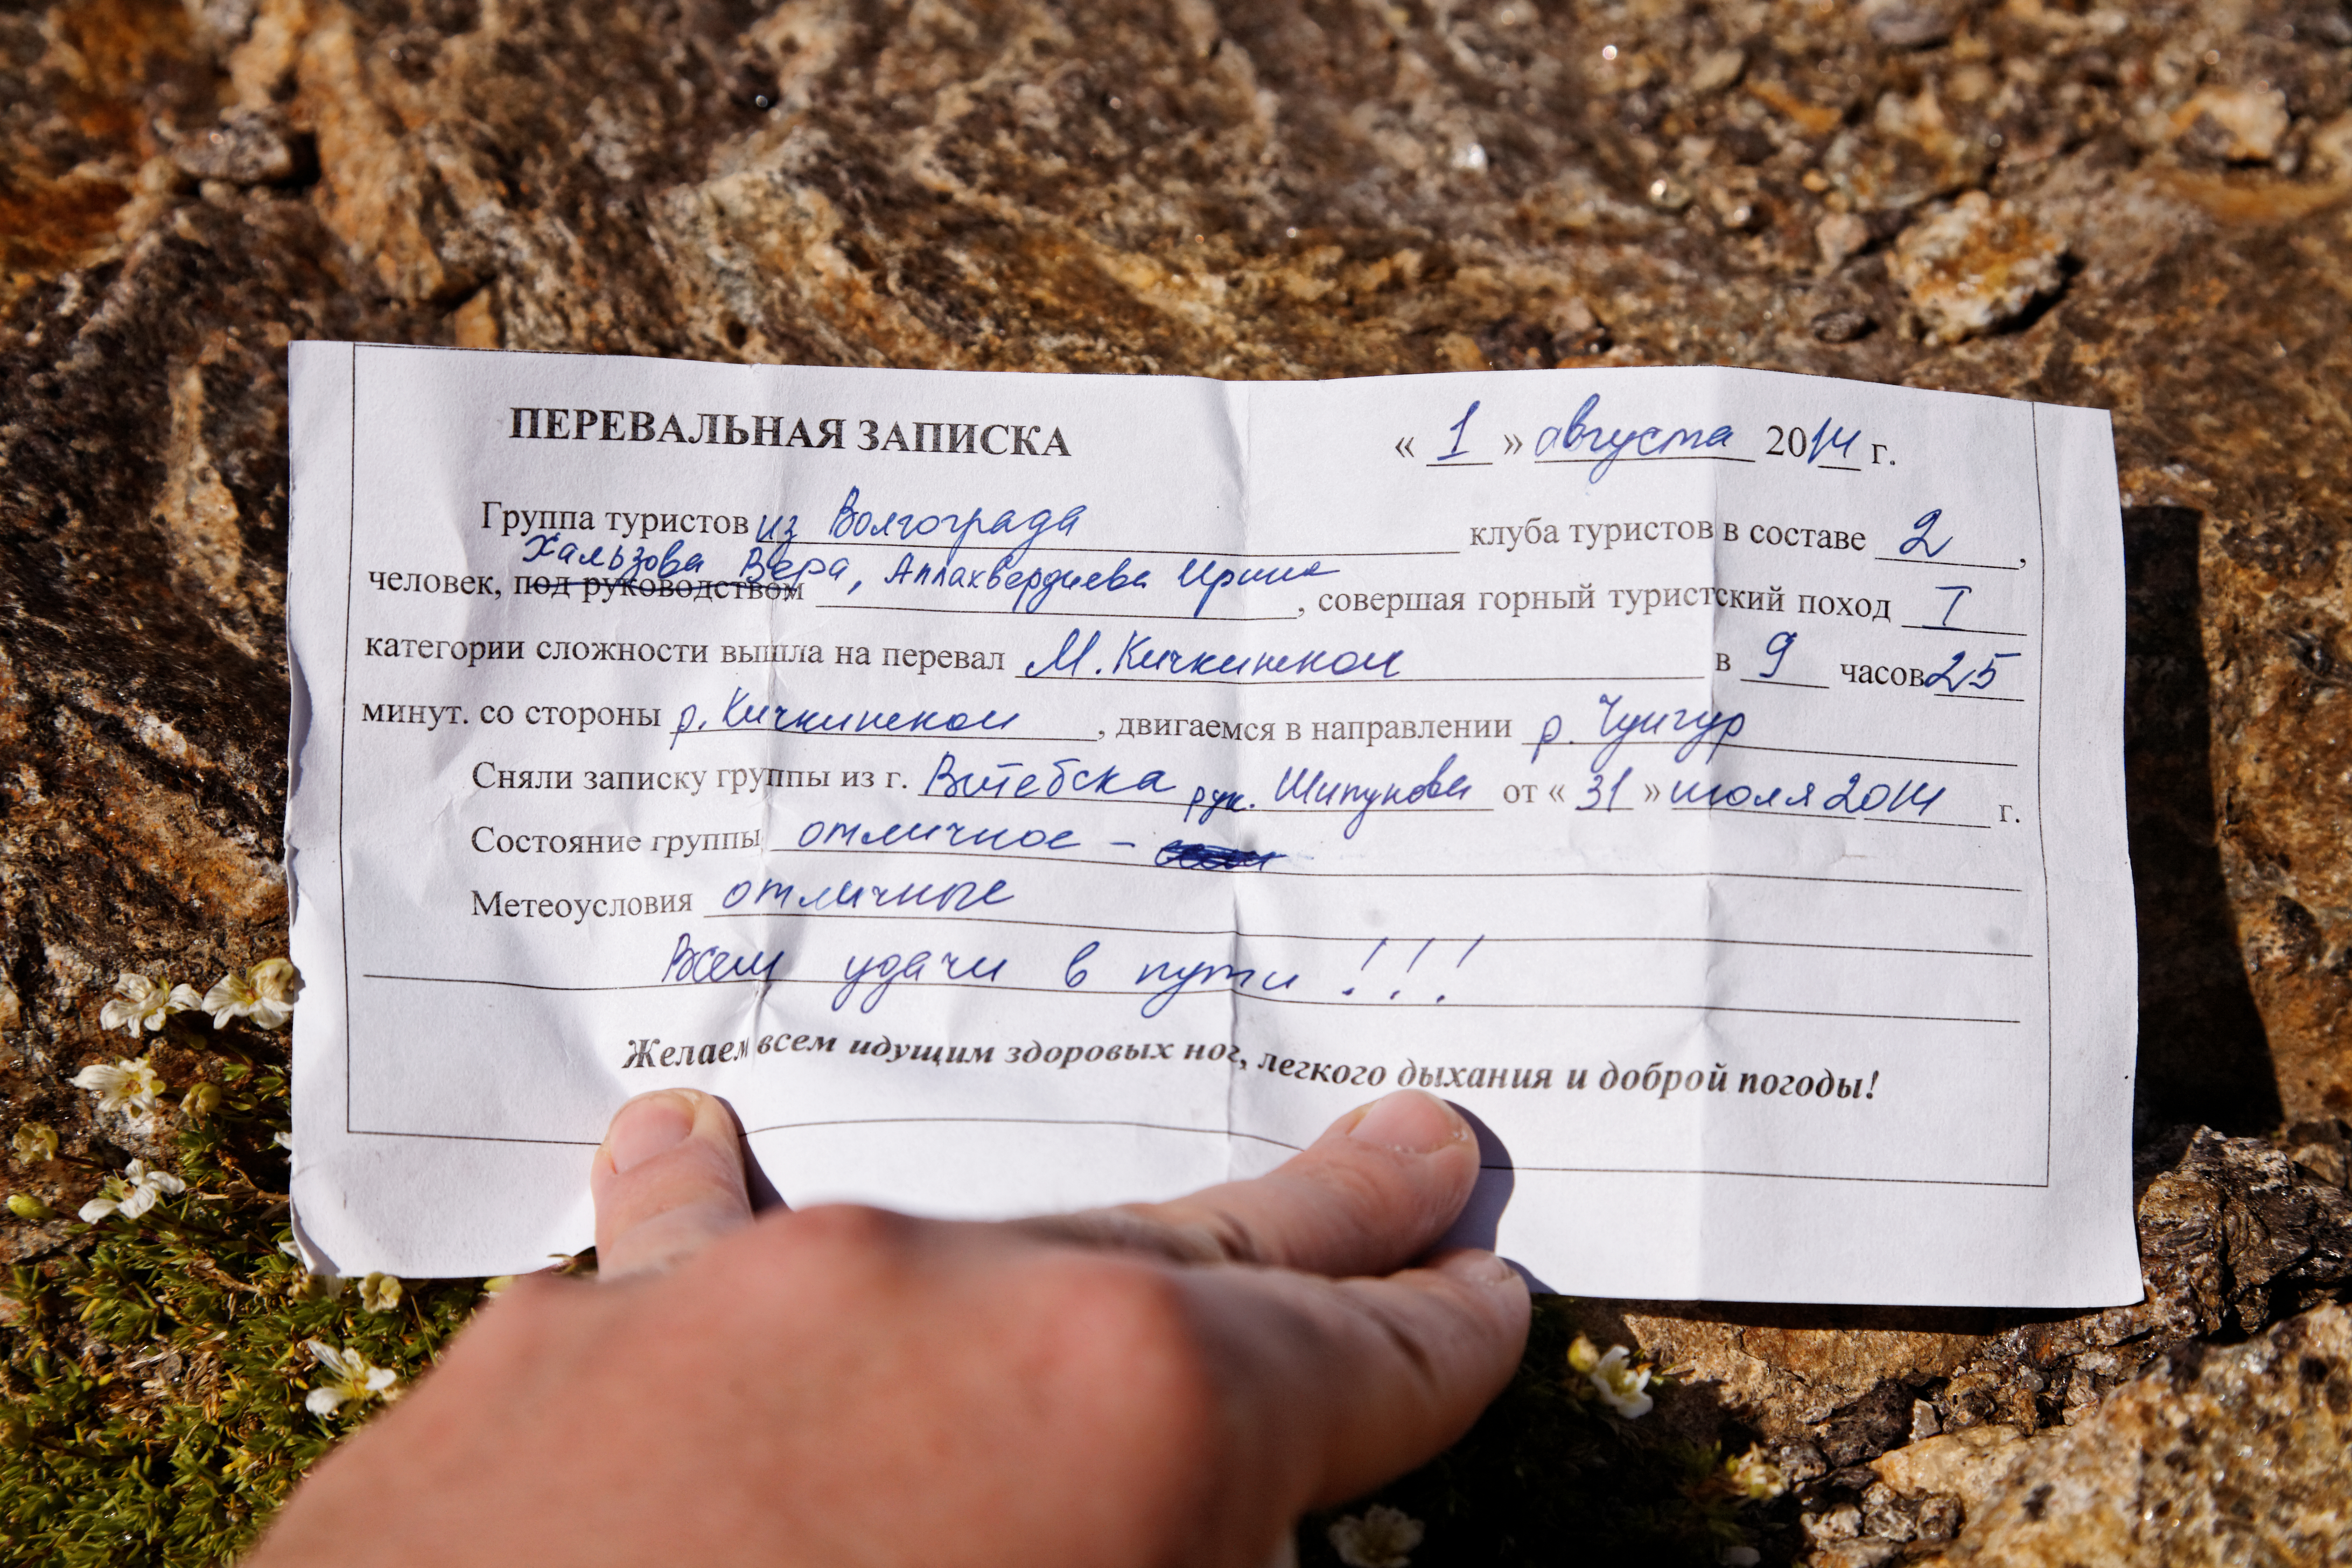 ПЕРЕВАЛЬНАЯ ЗАПИСКА « 1 » августа 2014 г.
Группа туристов из Волгограда клуба туристов в составе 2,
Хальзова Вера, Аллахвердиева Ирина
человек, под руководством , совершая горный туристский поход I
категории сложности вышла на перевал М. Кичкинекол в 9 часов 25
минут. со стороны р. Кичкинекол, двигаемся в направлении р. Чунгур
Сняли записку группы из г. Витебска рук. Шипунова от « 31 » июля 2014 г.
Состояние группы отличное -
Метеоусловия отличные
Всем удачи в пути!!!
Желаем всем идущим здоровых ног, легкого дыхания и доброй погоды!